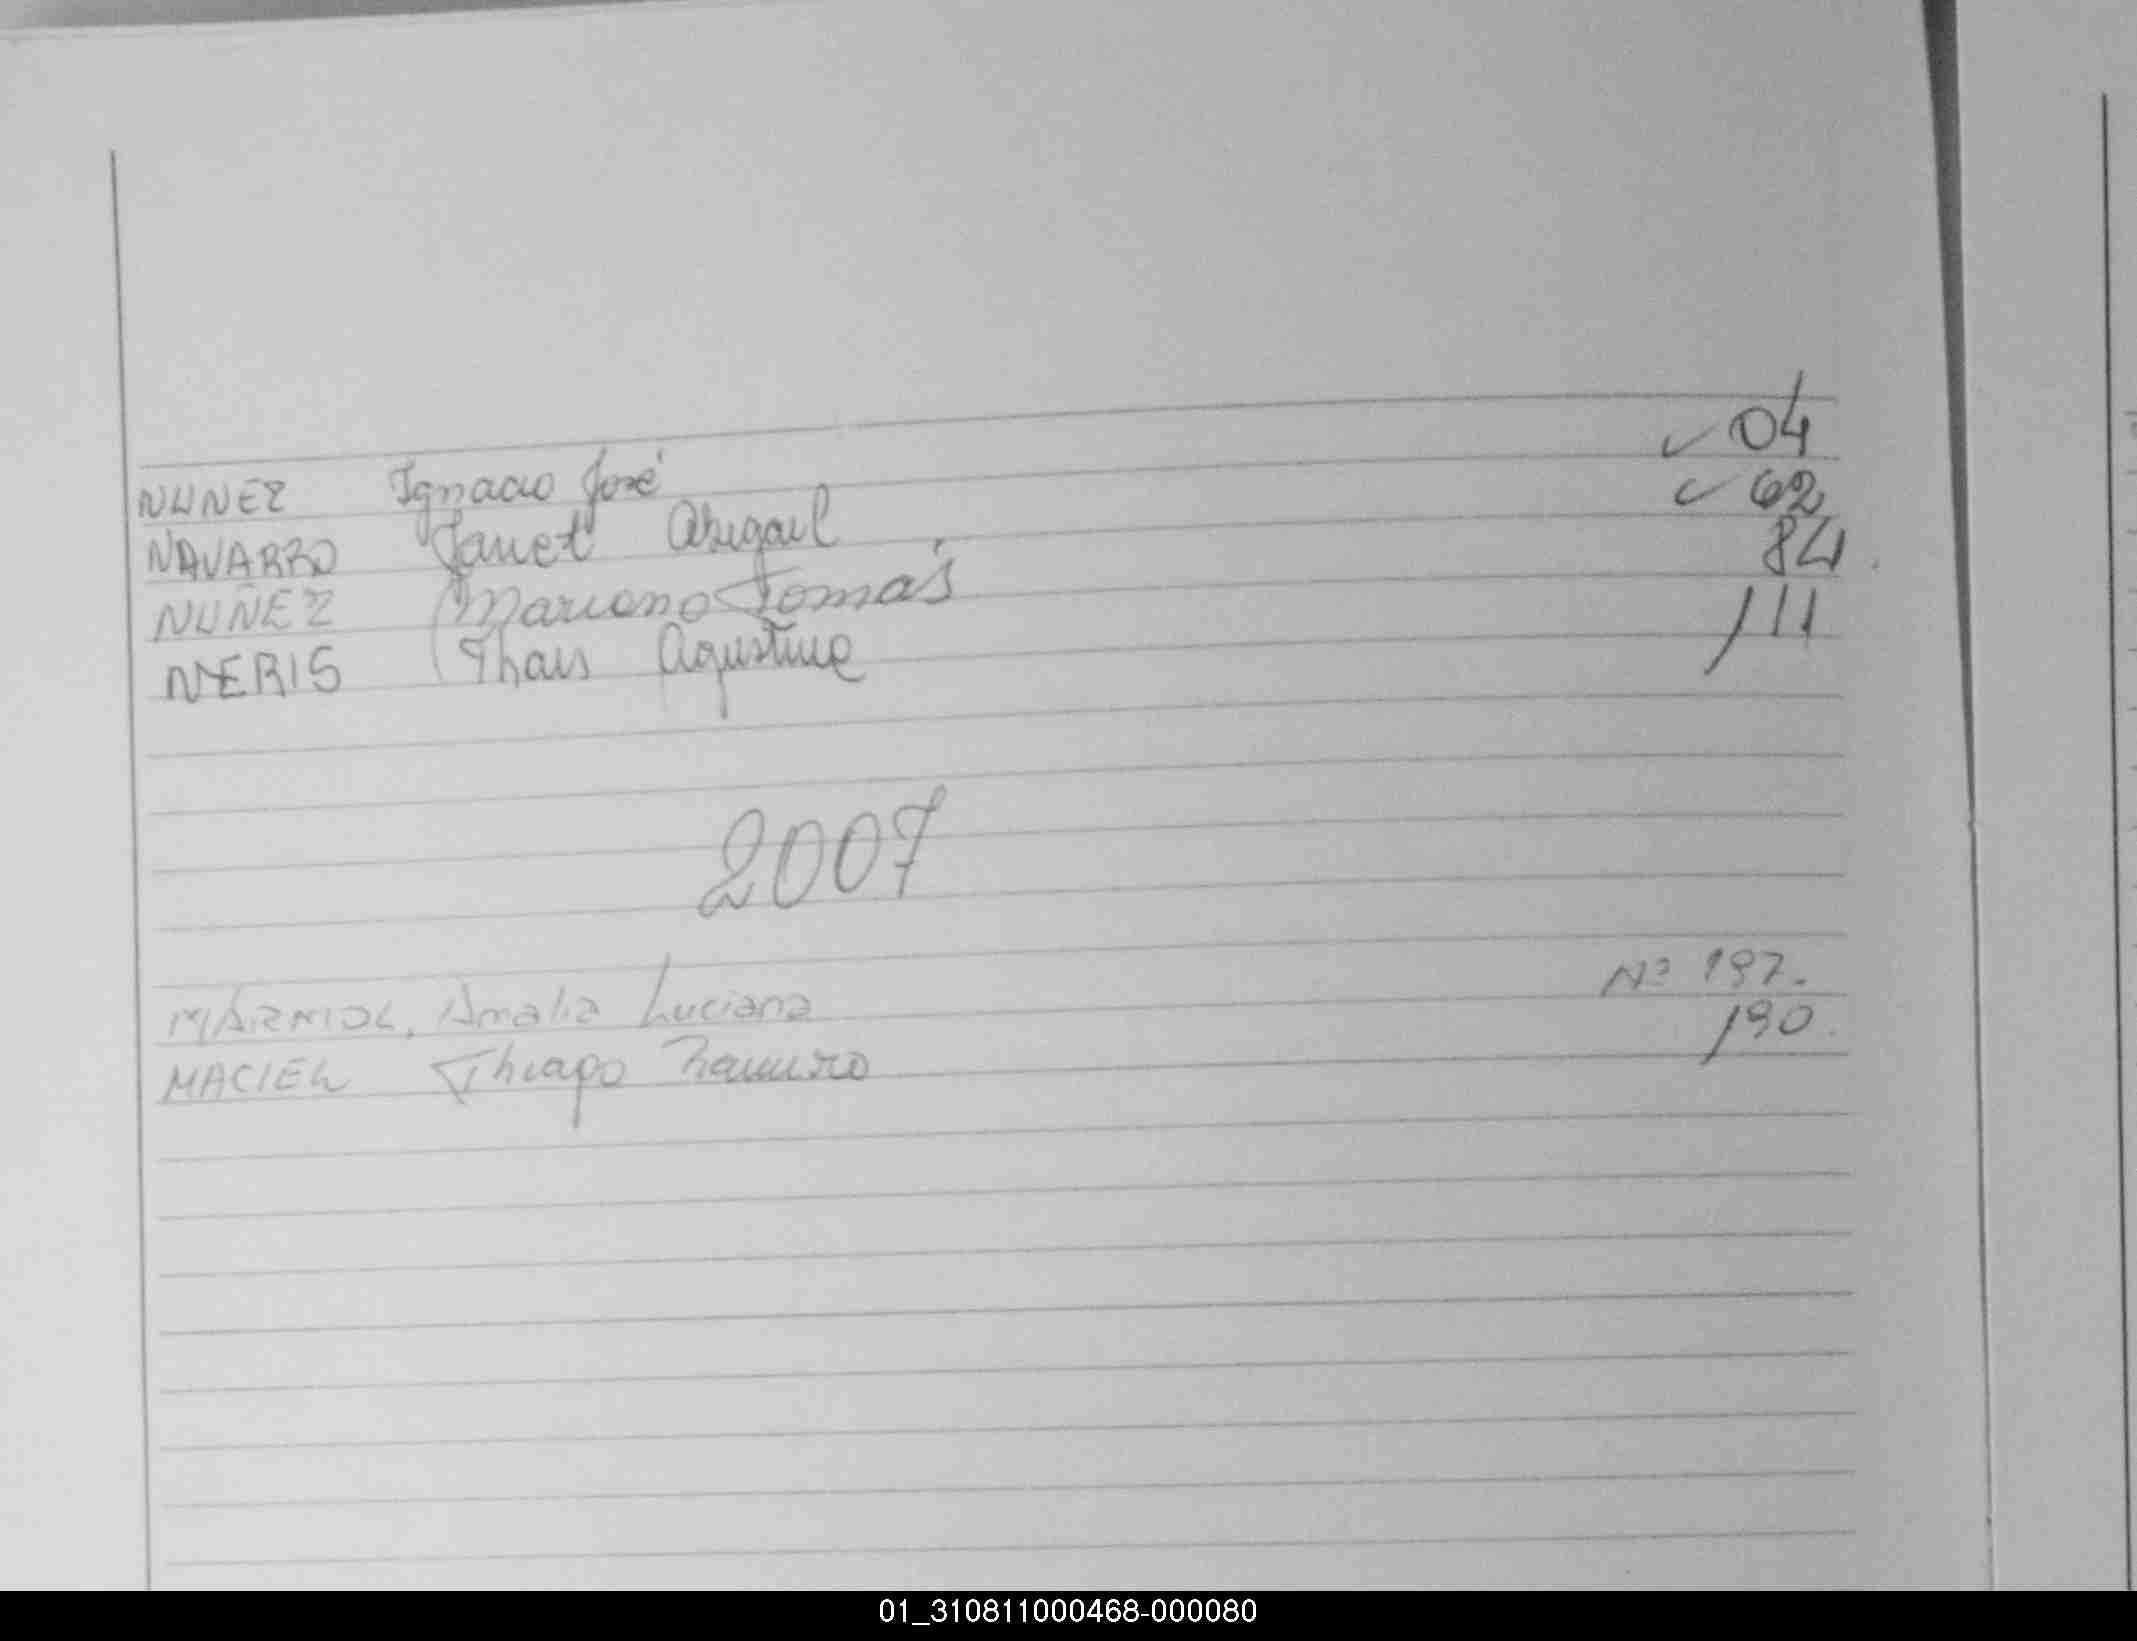 NUNEZ Ignacio José ✓ 04
NAVARRO Janet Abigail ✓ 62
NUÑEZ Mariano Tomás 84.
NERIS Thais Agustina 111
2007
MÁRMOL, Amalia Luciana Nº 197.
MACIEL Thiago Ramiro 190.
01_310811000468-000080